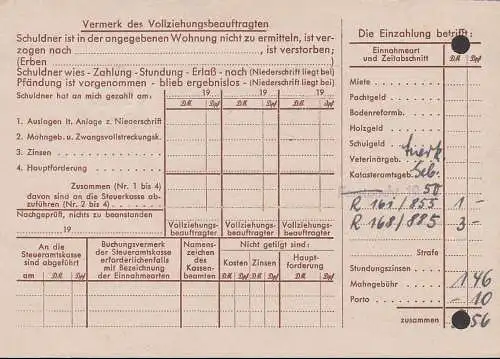 Vermerk des Vollziehungsbeauftragten
Schuldner ist in der angegebenen Wohnung nicht zu ermitteln, ist ver-
zogen nach , ist verstorben;
(Erben )
Schuldner wies - Zahlung - Stundung - Erlaß - nach (Niederschrift liegt bei)
Pfändung ist vorgenommen - blieb ergebnislos - (Niederschrift liegt bei)
Schuldner hat an mich gezahlt am: 19 19 19
D.M. Dpf D.M. Dpf D.M. Dpf
1. Auslagen lt. Anlage z. Niederschrift
2. Mahngeb. u. Zwangsvollstreckungsk.
3. Zinsen
4. Hauptforderung
Zusammen (Nr. 1 bis 4)
davon sind an die Steuerkasse ab-
zuführen (Nr. 2 bis 4)
Nachgeprüft, nicht zu beanstanden
19
Vollziehungs-
beauftragter
Vollziehungs-
beauftragter
Vollziehungs-
beauftragter
An die
Steueramtskasse
sind abgeführt
am D.M. Dpf
Buchungsvermerk
der Steueramtskasse
erforderlichenfalls
mit Bezeichnung
der Einnahmearten
Namens-
zeichen
des
Kassen-
beamten
Nicht getilgt sind:
Kosten Zinsen
Haupt-
forderung
D.M. Dpf D.M. Dpf D.M. Dpf
Die Einzahlung betrifft:
Einnahmeort
und Zeitabschnitt
D.M. Dpf
Miete
Pachtgeld
Bodenreformb.
Holzgeld
Schulgeld
Veterinärgeb.
Katasteramtsgeb. Geb.
50
R 161/855 1 -
R 168/885 3 -
Strafe
Stundungszinsen
Mahngebühr 1 46
Porto - 10
zusammen 56